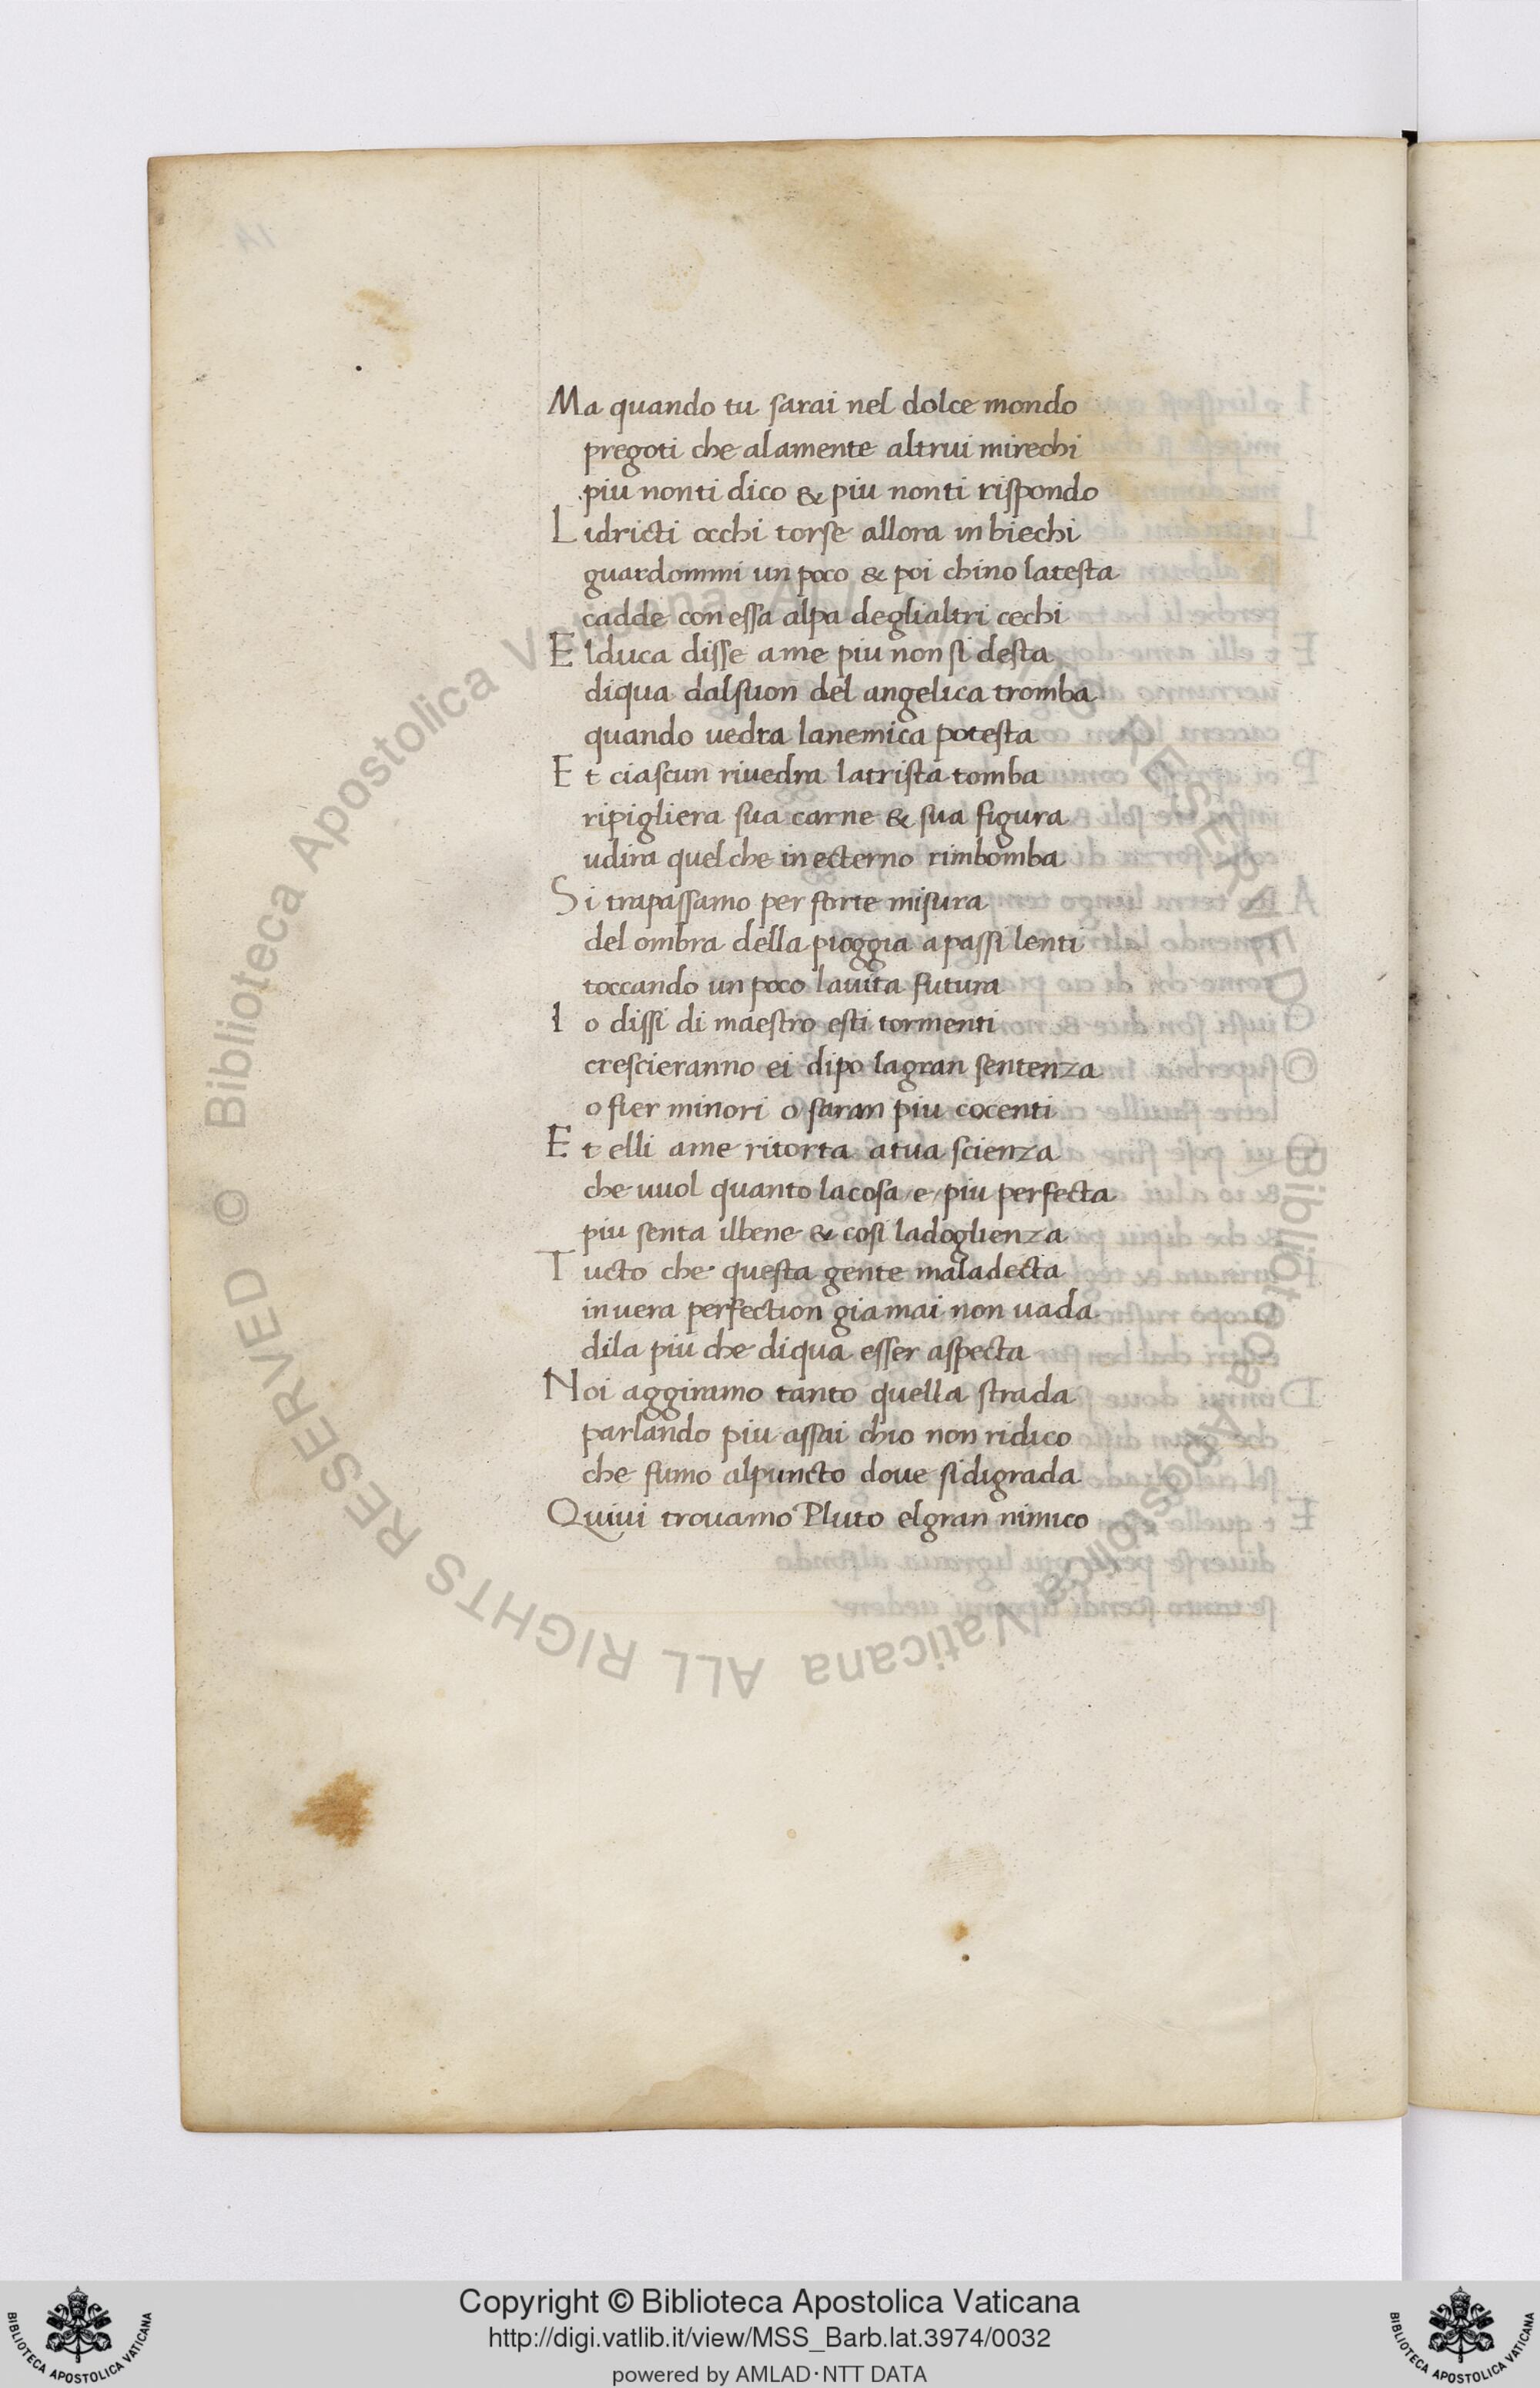 Ma quando tu sarai nel dolce mondo
pregoti che alamente altrui mirechi
piu nonti dico & piu nonti rispondo
Lidricti occhi torse allora in biechi
guardommi un poco & poi chino latesta
cadde con essa alpa deglialtri cechi
Elduca disse ame piu non si desta
diqua dalsuon del angelica tromba
quando uedra lanemica potesta
Et ciascun riuedra latrista tomba
ripigliera sua carne & sua figura
udira quel che in ecterno rimbomba
Si trapassamo per sorte misura
del ombra della pioggia apassi lenti
toccando un poco lauita futura
Io dissi di maestro esti tormenti
crescieranno ei dipo lagran sentenza
o fier minori o saran piu cocenti
Et elli ame ritorta atua scienza
che uuol quanto lacosa /e/ piu perfecta
piu senta ilbene & cosi ladoglienza
Tucto che questa gente maladecta
in uera perfection gia mai non uada
dila piu che diqua esser aspecta
Noi aggiramo tanto quella strada
parlando piu assai chio non ridico
che fumo alpuncto doue sidigrada
Quiui trouamo Pluto elgran nimico
© Biblioteca Apostolica Vaticana ALL RIGHTS RESERVED © Biblioteca Apostolica Vaticana ALL RIGHTS RESERVED
Copyright © Biblioteca Apostolica Vaticana
http://digi.vatlib.it/view/MSS_Barb.lat.3974/0032
powered by AMLAD·NTT DATA
BIBLIOTECA APOSTOLICA VATICANA
BIBLIOTECA APOSTOLICA VATICANA